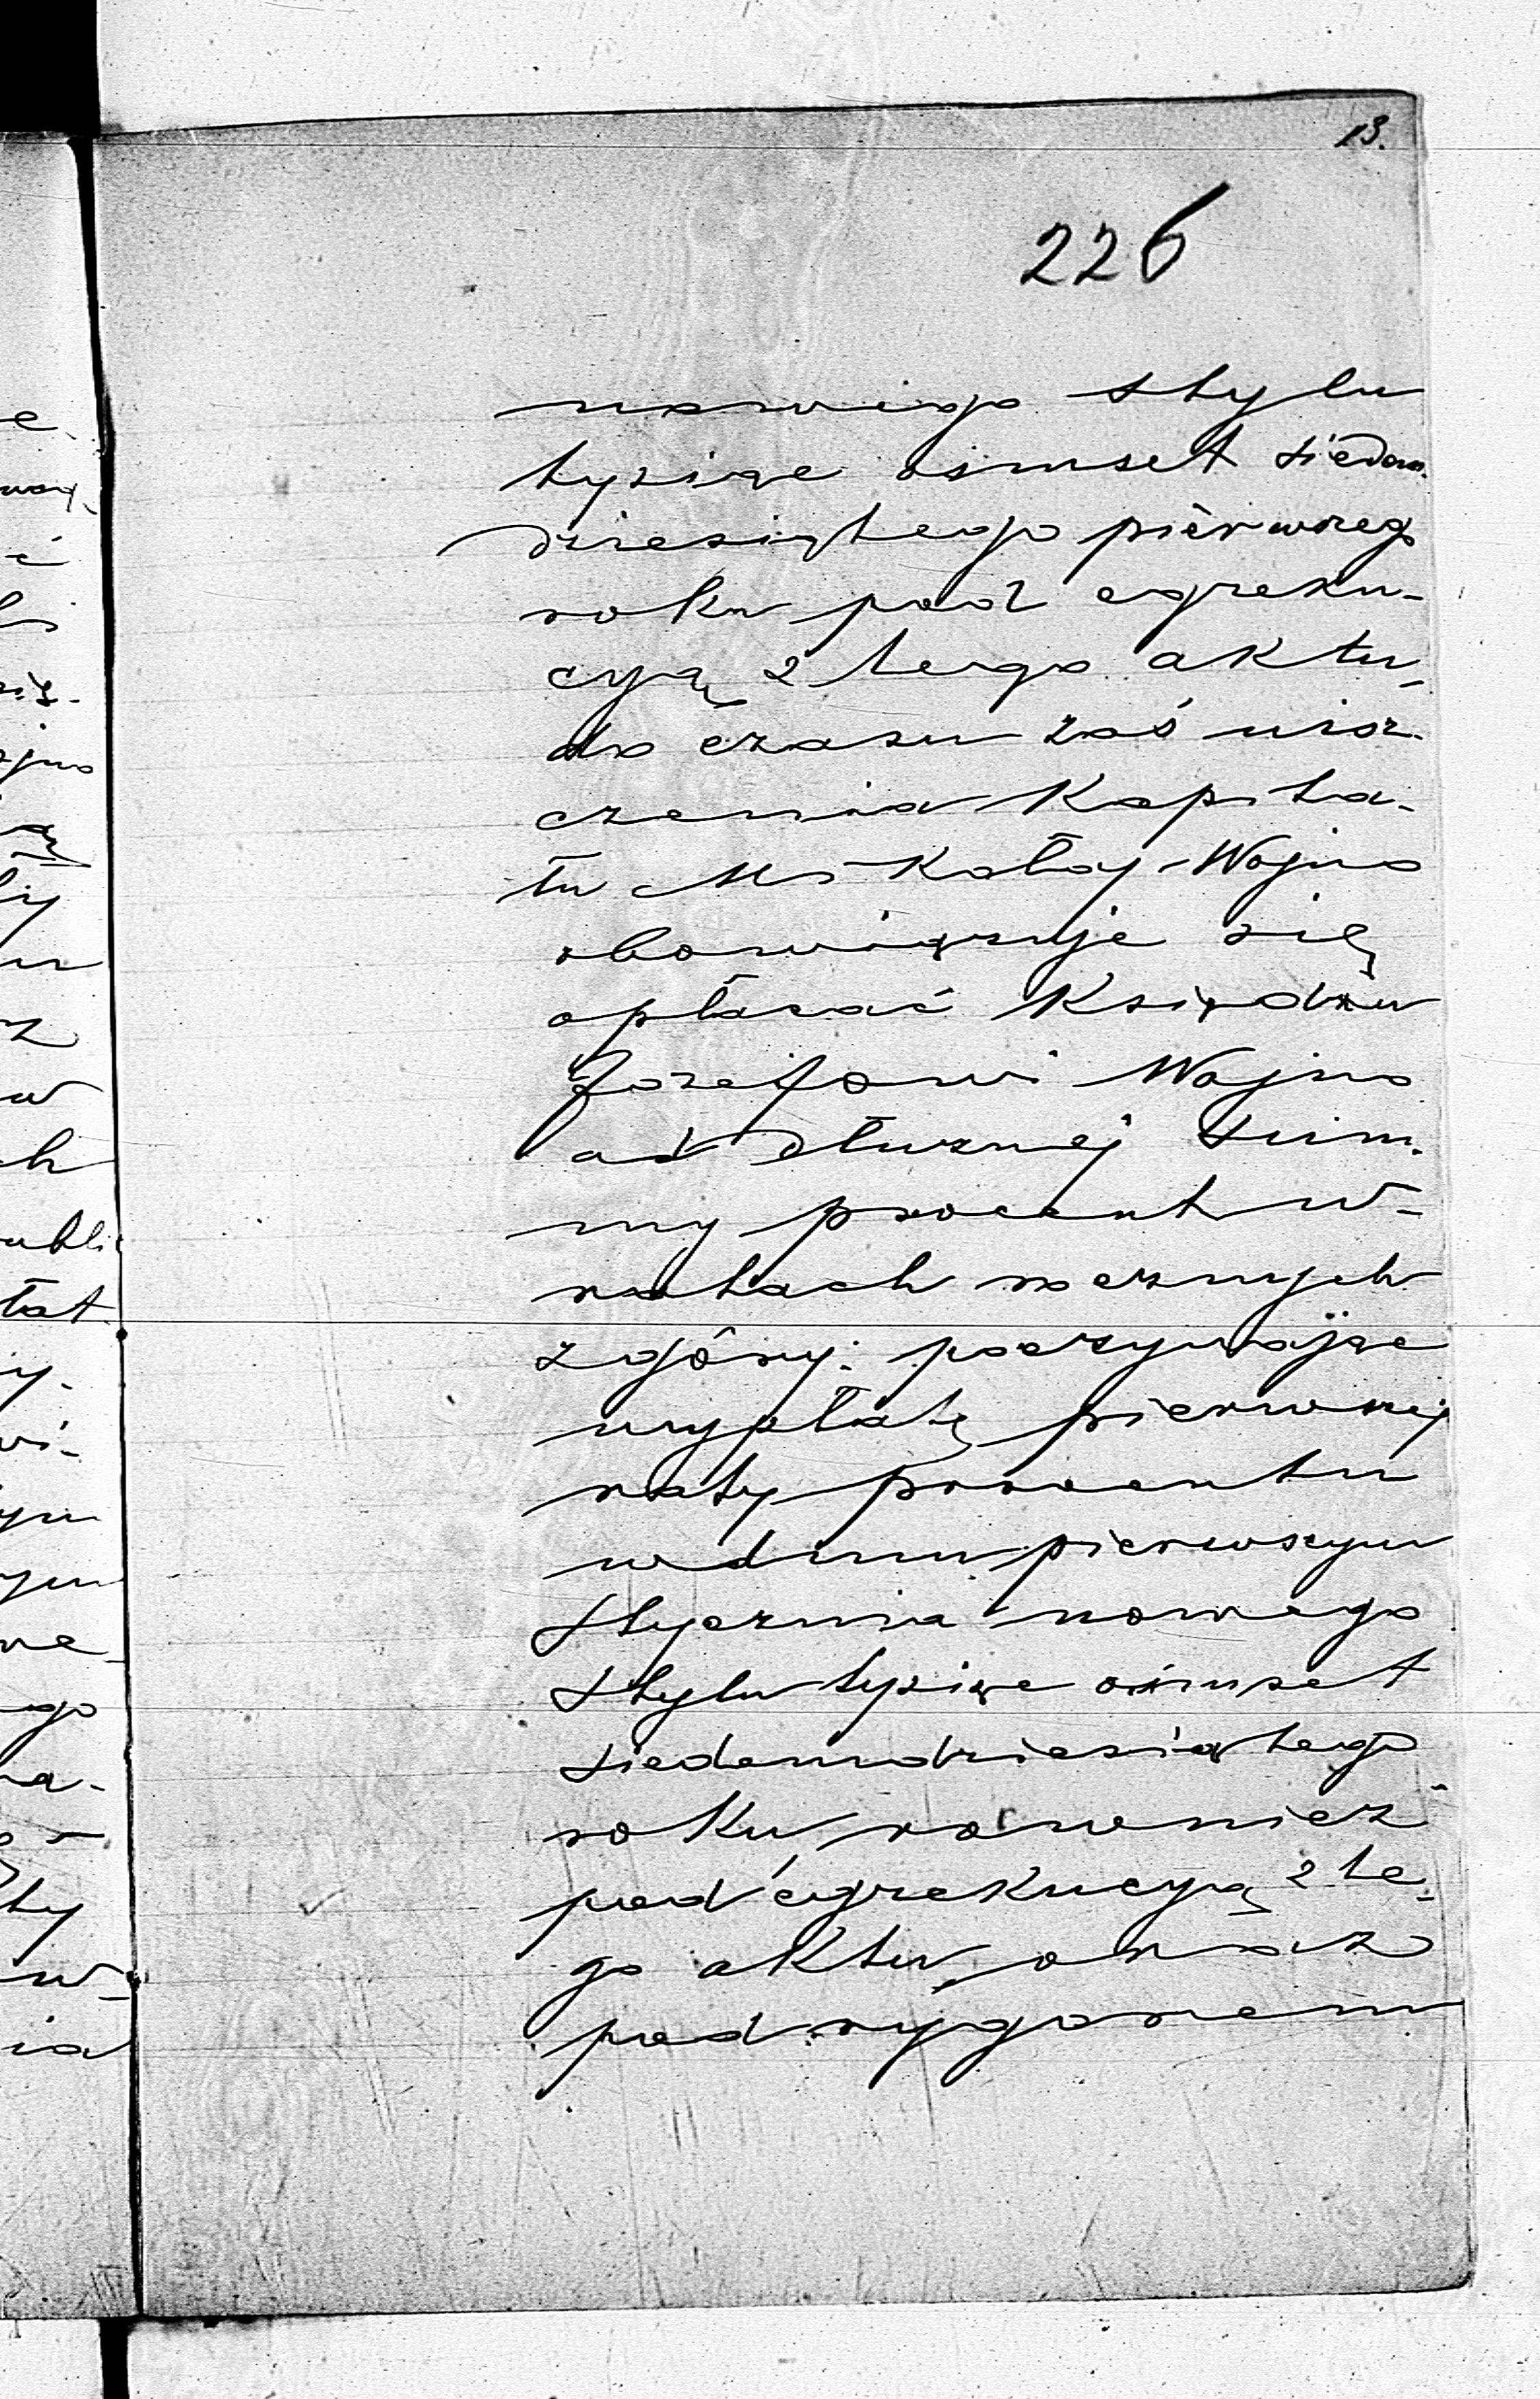 13.
226
nowego stylu
tysiąc ośmset siedem.
dziesiątego pierwszego
roku pod egzeku-
cyą z tego aktu,
do czasu zaś uisz-
czenia Kapita-
łu Mikołaj Wojno
obowiązuje się
opłacać Księdzu
Józefowi Wojno
od dłużnej sum-
my procent w-
ratach rocznych
z góry: poczynając
wypłatę pierwszej
raty procentu
w dniu pierwszym
Stycznia nowego
Stylu tysiąc ośmset
siedemdziesiątego
roku, również
pod egzekucyą z te-
go aktu, oraz
pod rygorem